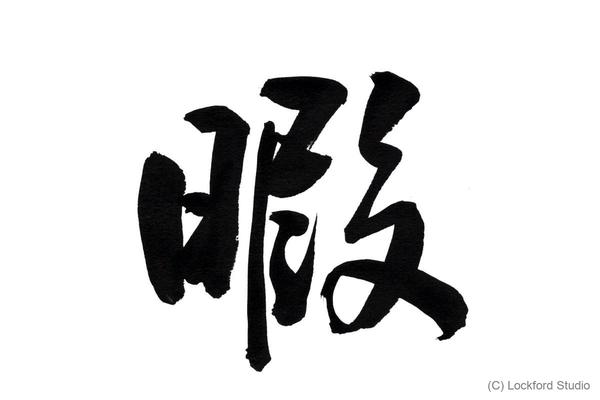 暇
(C) Lockford Studio